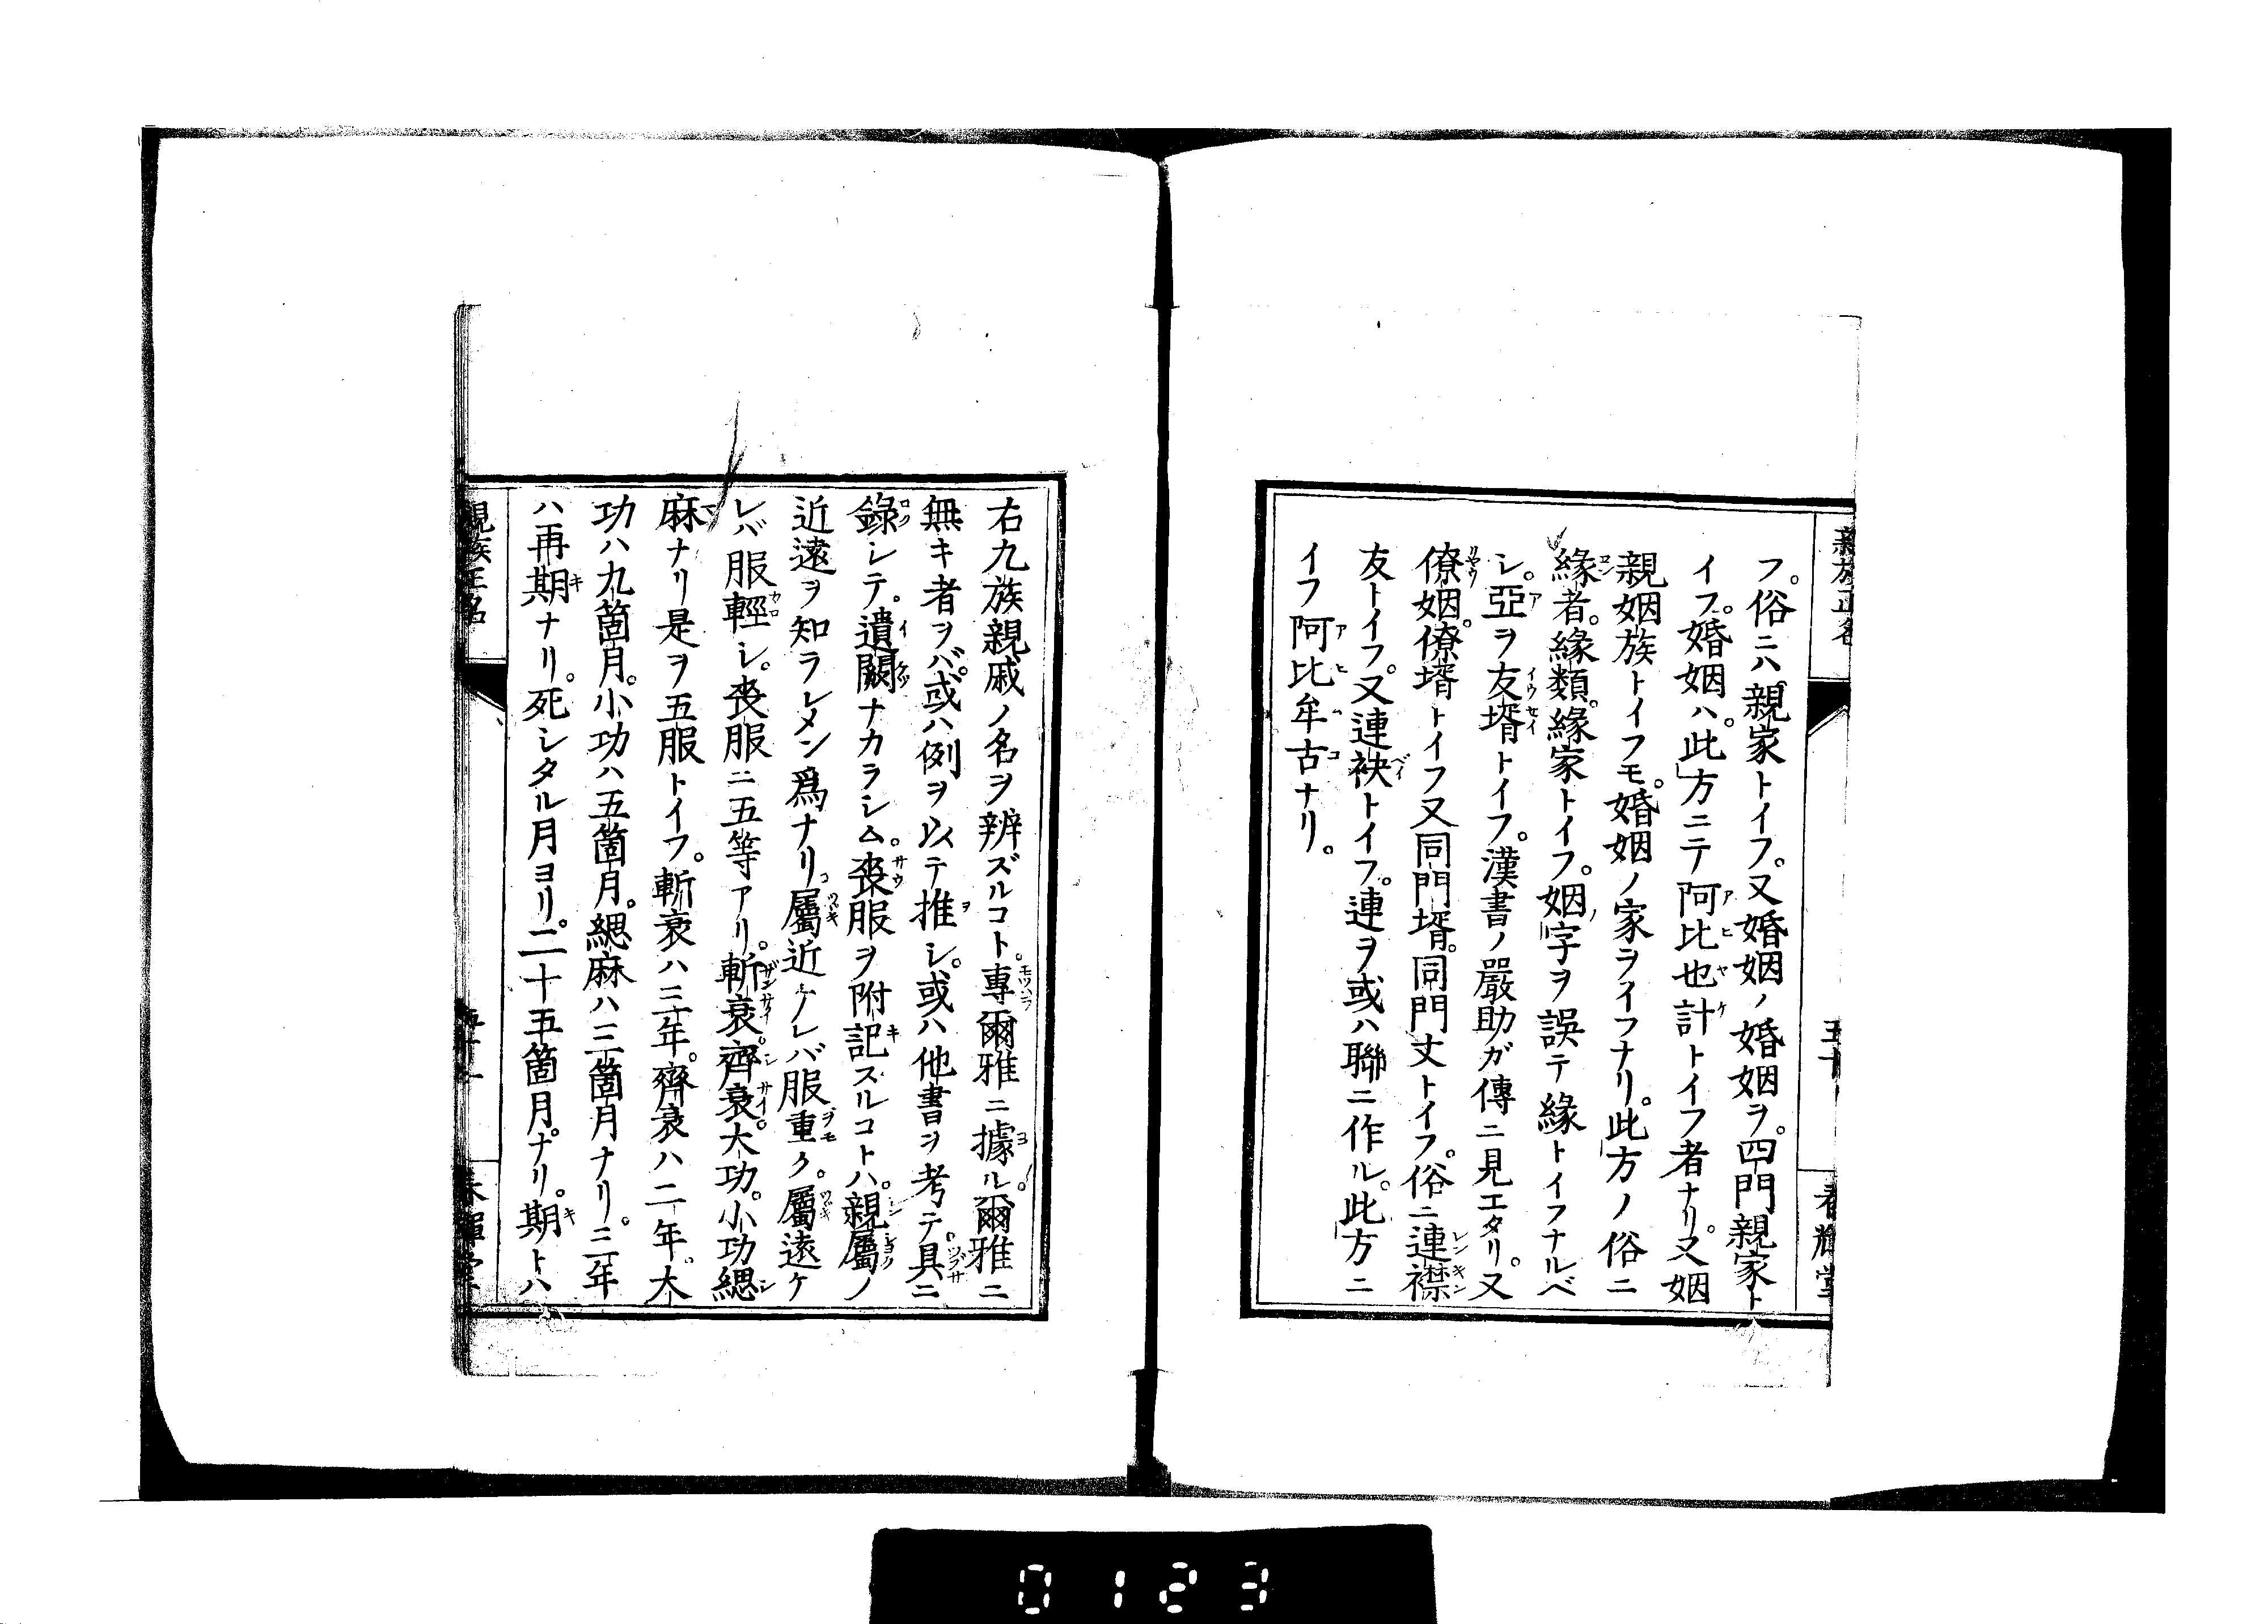 親族正名
五十
春輝堂
フ。俗ニハ親家トイフ。又婚姻ノ婚姻ヲ。四門親家ト
イフ。婚姻ハ。此方ニテ阿比也計トイフ者ナリ。又姻
親姻族トイフモ。婚姻ノ家ヲイフナリ。此方ノ俗ニ
縁者。縁類。縁家トイフ。姻字ヲ誤テ縁トイフナルベ
シ。亞ヲ友壻トイフ。漢書ノ嚴助ガ傳ニ見エタリ。又
僚姻。僚壻トイフ又同門壻。同門丈トイフ。俗ニ連襟
友トイフ。又連袂トイフ。連ヲ或ハ聯ニ作ル。此方ニ
イフ阿比牟古ナリ。
右九族親戚ノ名ヲ辨ズルコト。專爾雅ニ據ル。爾雅ニ
無キ者ヲバ。或ハ例ヲ以テ推シ。或ハ他書ヲ考テ。具ニ
錄シテ。遺闕ナカラシム。喪服ヲ附記スルコトハ。親屬ノ
近遠ヲ知ラシメン爲ナリ。屬近ケレバ服重ク。屬遠ケ
レバ服輕シ。喪服ニ五等アリ。斬衰。齊衰。大功。小功緦
麻ナリ是ヲ五服トイフ。斬衰ハ三年。齊衰ハ二年。大
功ハ九箇月。小功ハ五箇月。緦麻ハ三箇月ナリ。三年
ハ再期ナリ。死シタル月ヨリ。二十五箇月ナリ。期トハ
親族正名
五十一
春輝堂
0123